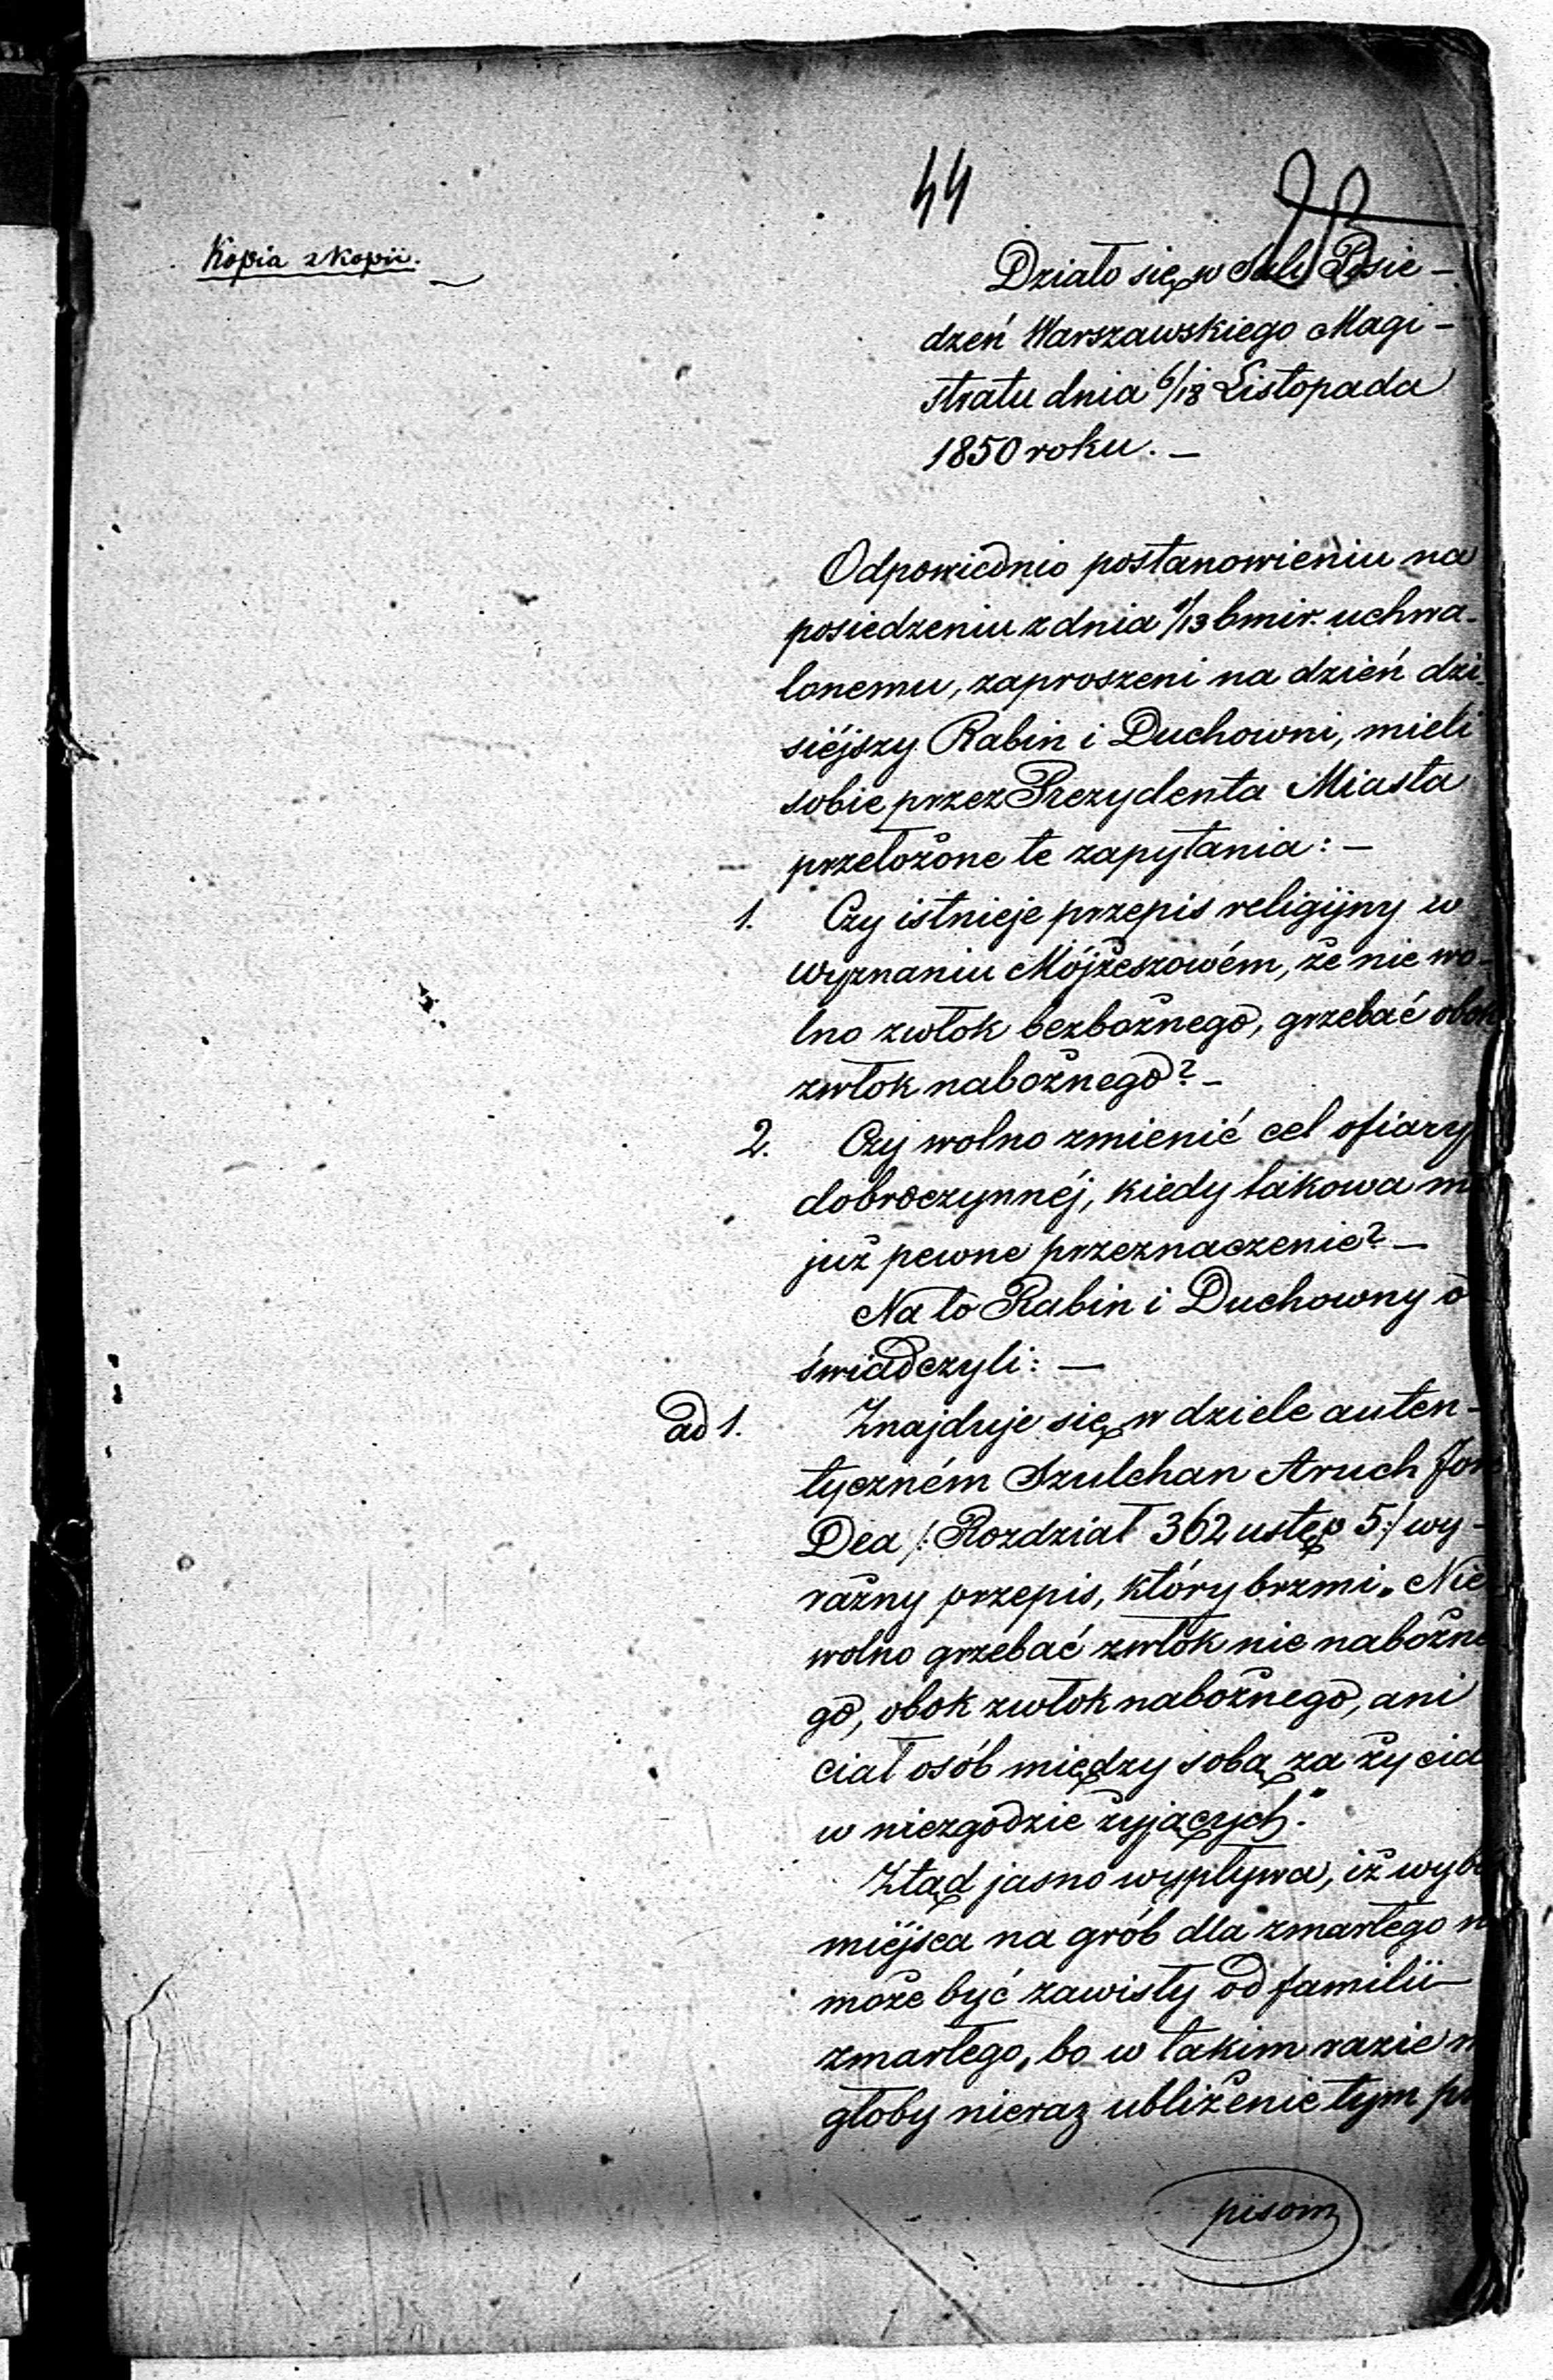 44
Kopia z Kopii.
Działo się w Sali Posie-
dzeń Warszawskiego Magi-
stratu dnia 6/18 Listopada
1850 roku. -
Odpowiednio postanowieniu na
posiedzeniu z dnia 1/13 bmir. uchwa-
lonemu, zaproszeni na dzień dzi-
siéjszy Rabin i Duchowni, mieli
sobie przez Prezydenta Miasta
przełożone te zapytania: -
1. Czy istnieje przepis religijny w
wyznaniu Mójżeszowém, że nie wo-
lno zwłok bezbożnego, grzebać obok
zwłok nabożnego? -
2. Czy wolno zmienić cel ofiary
dobroczynnéj, kiedy takowa ma
już pewne przeznaczenie? -
Na to Rabin i Duchowny o
świadczyli: -
ad 1. Znajduje się w dziele auten-
tyczném Szulchan Aruch
Dea /: Rozdział 362 ustęp 5:/ wy-
raźny przepis, który brzmi „Nie
wolno grzebać zwłok nie nabożne
go, obok zwłok nabożnego, ani
ciał osób między sobą za życia
w niezgodzie żyjących."
Ztąd jasno wypływa, iż
miéjsca na grób dla zmarłego
może być zawisły od familii
zmarłego, bo w takim razie
głoby nieraz ubliżenie tym
pisom